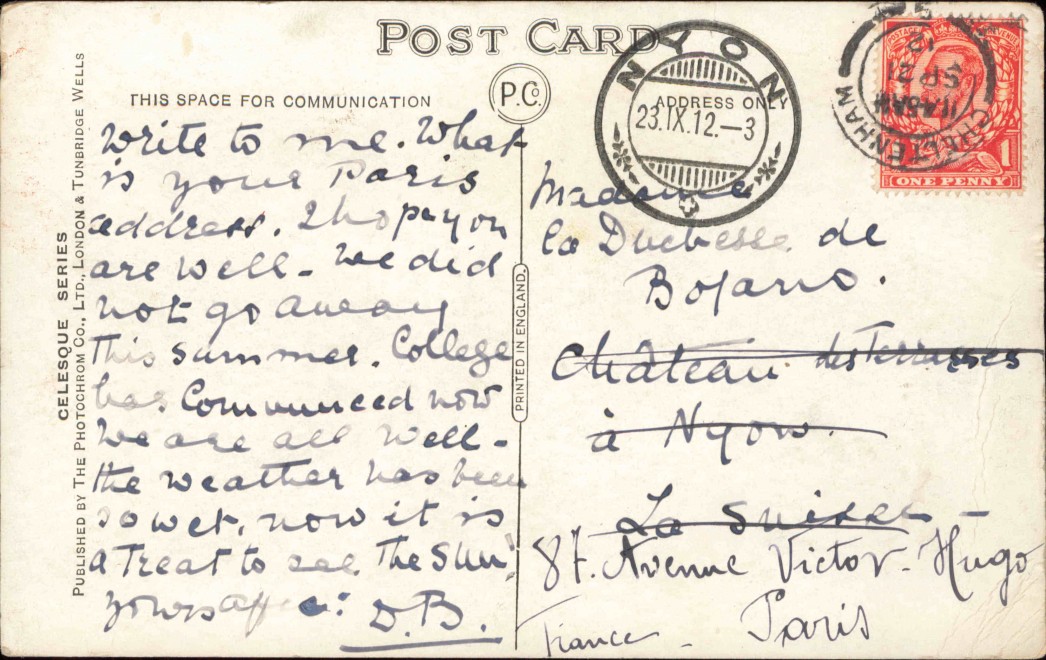 POST CARD
THIS SPACE FOR COMMUNICATION
P.Co.
ADDRESS ONLY
NYON
23.IX.12.–3
CHELTENHAM
SP 21
12
POSTAGE REVENUE
1
ONE PENNY
CELESQUE SERIES
PUBLISHED BY THE PHOTOCHROM CO., LTD., LONDON & TUNBRIDGE WELLS
PRINTED IN ENGLAND.
Write to me. What
is your Paris
address. I hope you
are well – We did
not go away
this summer. College
has Commenced now
We are all well –
the weather has been
so wet, now it is
a Treat to see The Sun!
yours affec: D.B.
Madame
la Duchesse de
Bojano.
Château des Terrasses
à Nyon.
La Suisse –
87. Avenue Victor-Hugo
Paris
France